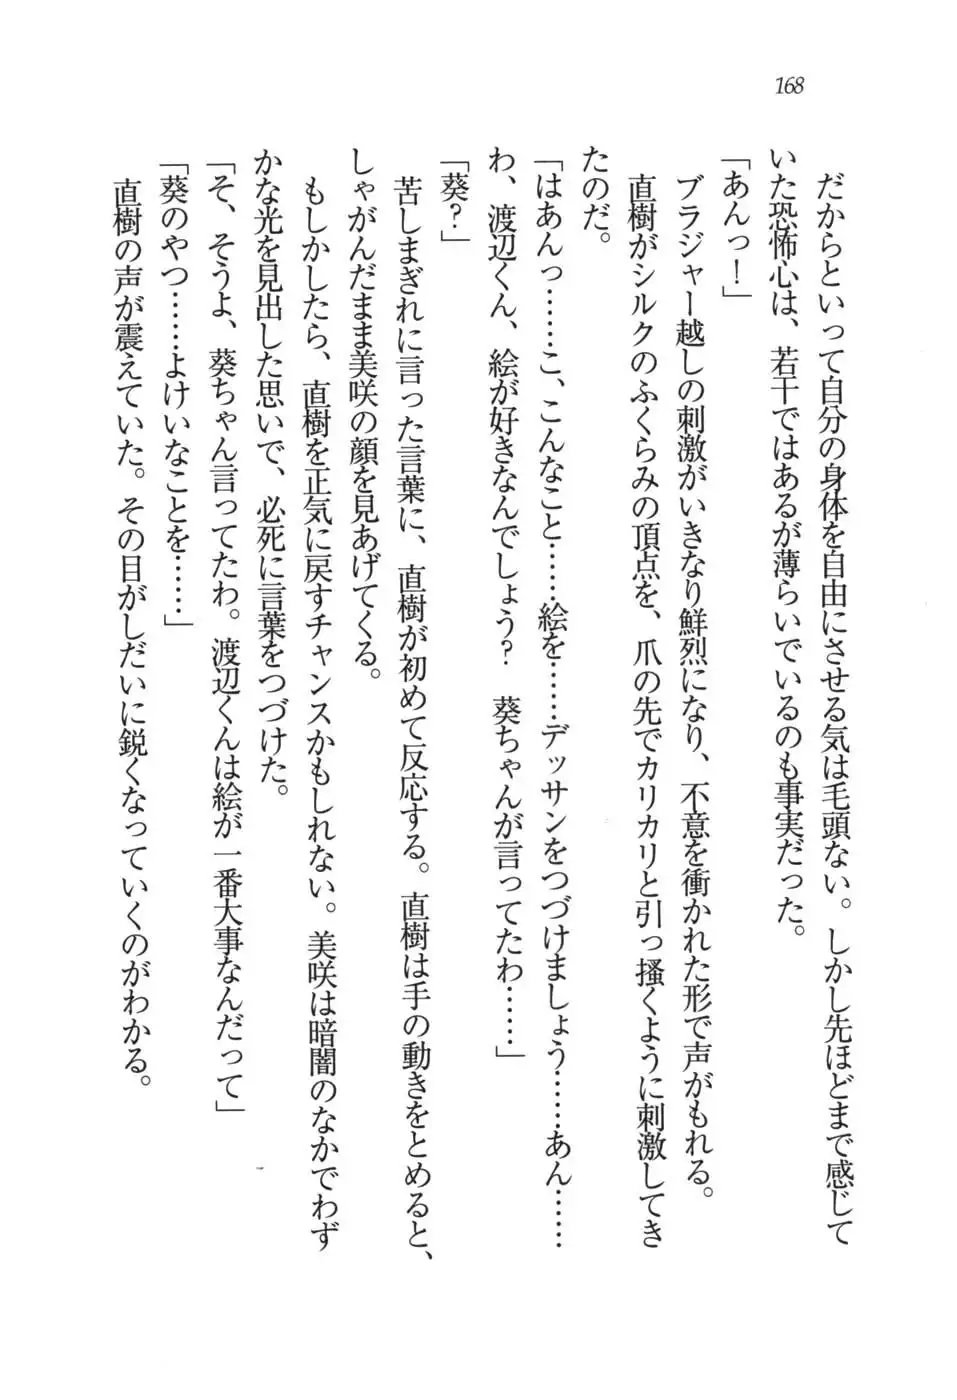 168
だからといって自分の身体を自由にさせる気は毛頭ない。しかし先ほどまで感じて
いた恐怖心は、若干ではあるが薄らいでいるのも事実だった。
「あんっ！」
ブラジャー越しの刺激がいきなり鮮烈になり、不意を衝かれた形で声がもれる。
直樹がシルクのふくらみの頂点を、爪の先でカリカリと引っ掻くように刺激してき
たのだ。
「はあんっ……こ、こんなこと……絵を……デッサンをつづけましょう……あん……
わ、渡辺くん、絵が好きなんでしょう？　葵ちゃんが言ってたわ……」
「葵？」
苦しまぎれに言った言葉に、直樹が初めて反応する。直樹は手の動きをとめると、
しゃがんだまま美咲の顔を見あげてくる。
もしかしたら、直樹を正気に戻すチャンスかもしれない。美咲は暗闇のなかでわず
かな光を見出した思いで、必死に言葉をつづけた。
「そ、そうよ、葵ちゃん言ってたわ。渡辺くんは絵が一番大事なんだって」
「葵のやつ……よけいなことを……」
直樹の声が震えていた。その目がしだいに鋭くなっていくのがわかる。